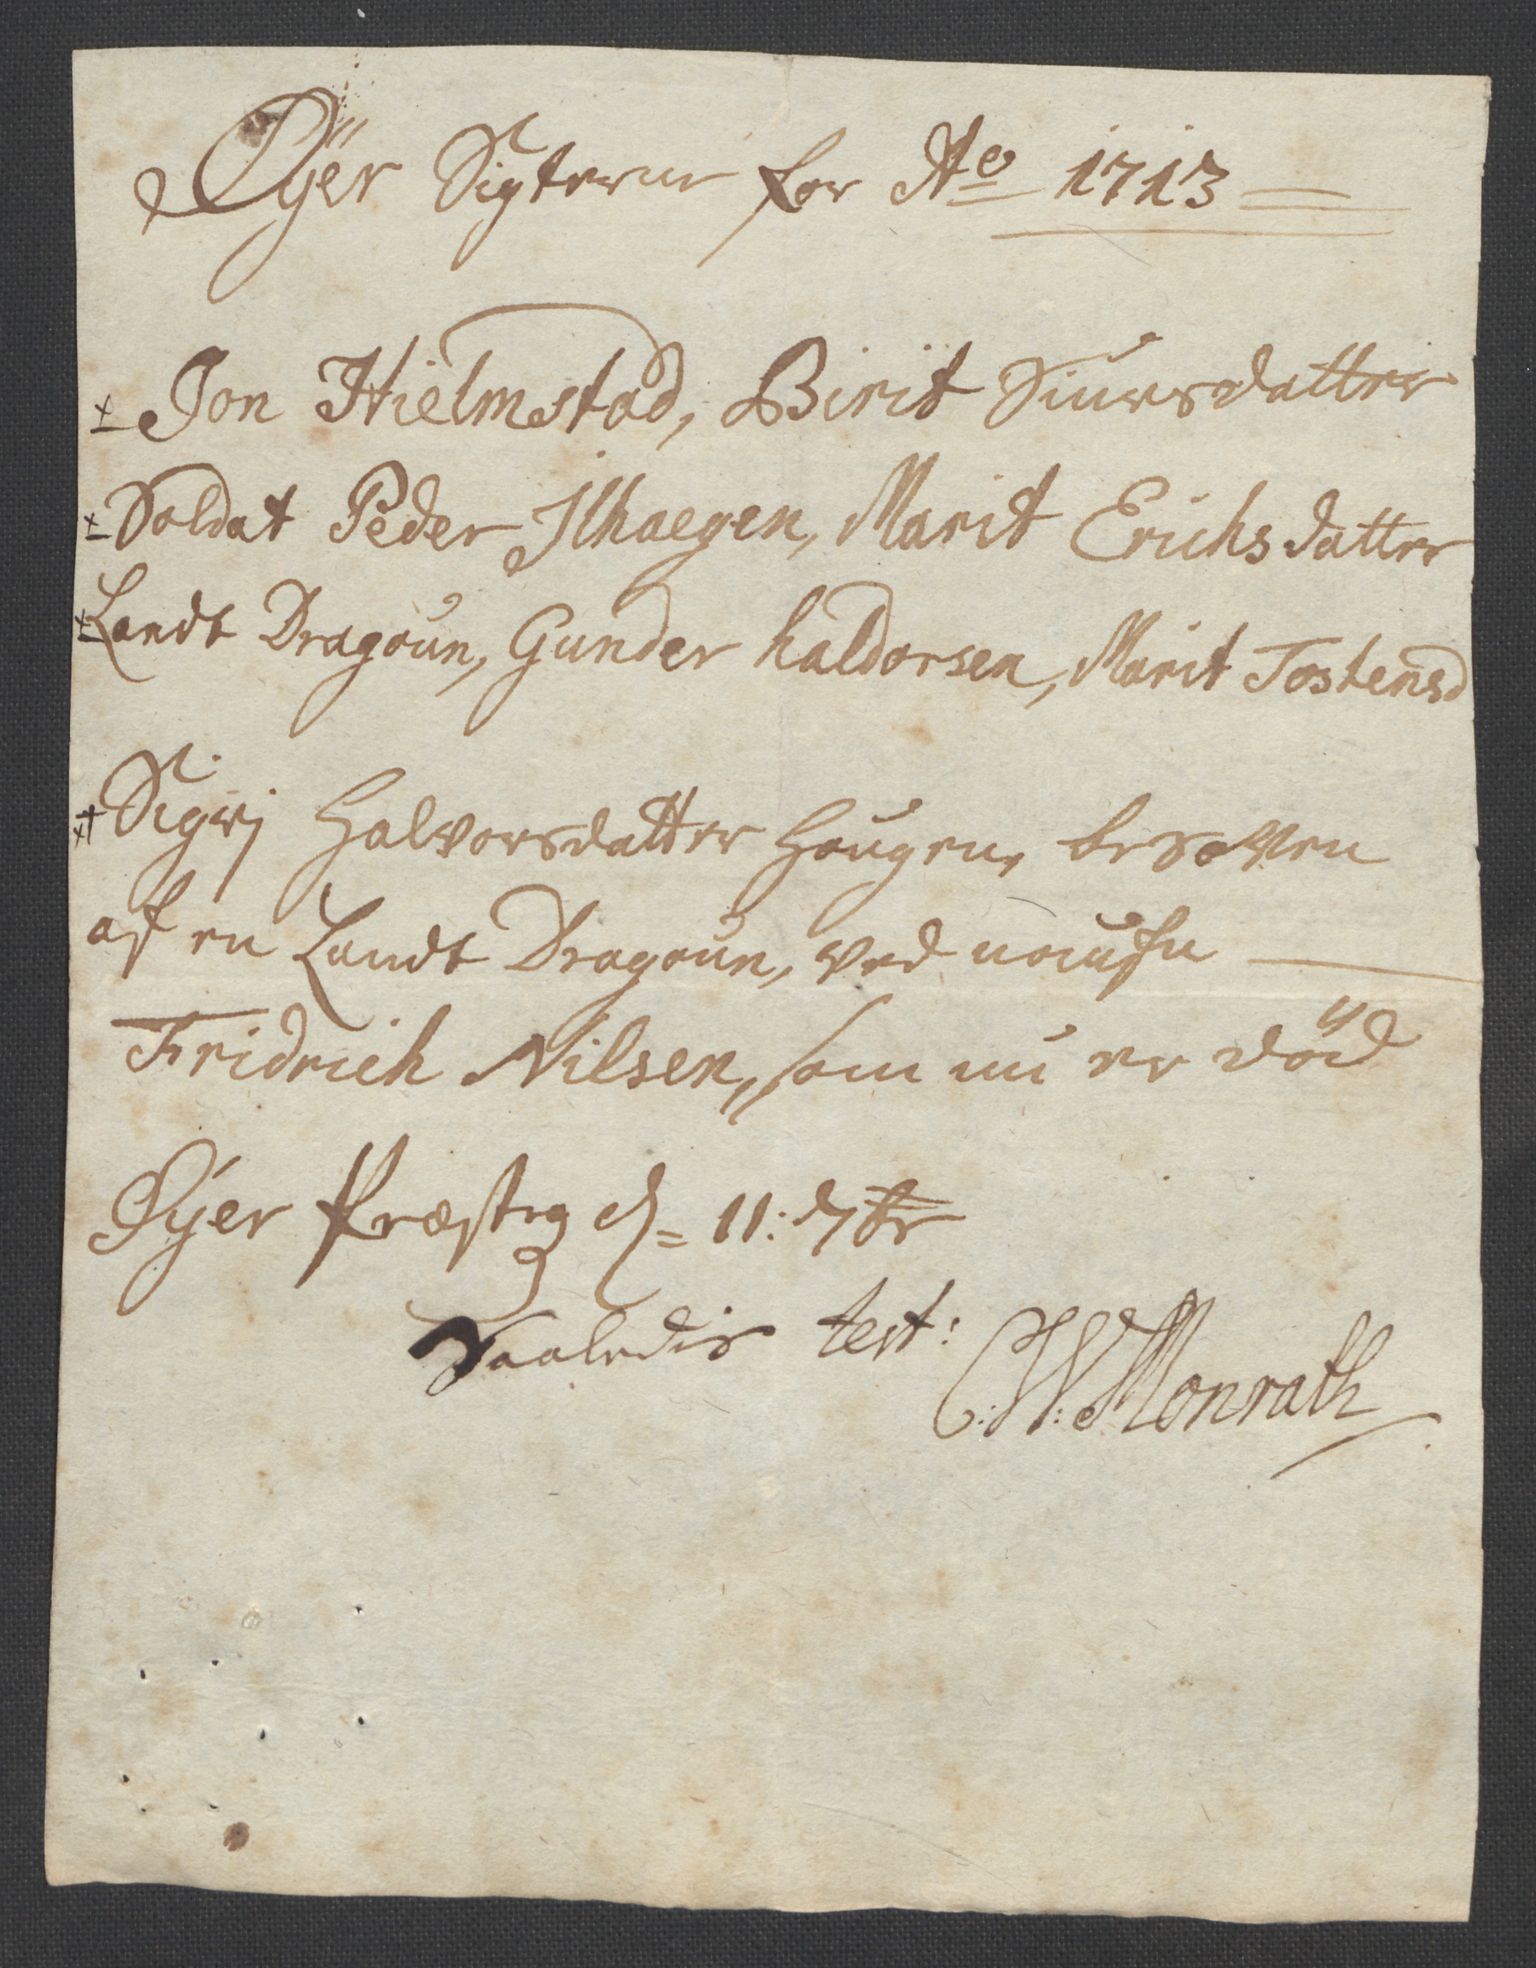 Øÿer Sigterne for Ao 1713
Jon Hielmstad, Birit Siursdatter
Soldat Peder Jlhaegen, Marit Erichsdatter
Landt Dragoun, Gunder haldorsen, Marit Tostensd
Sigrj Halvorsdatter Haugen, besoffen
af en Landt Dragoun, ved naufn
Fridrich Nilsen, som nu er död
Øyer Præsteg d= 11: 7br
Saaledis test: W: Monrath